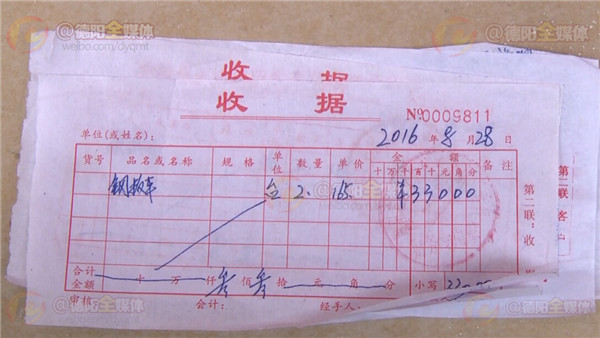 @德阳全媒体
weibo.com/dyqmt
@德阳全媒体
收 据
收 据
№0009811
2016年8月28日
单位(或姓名):
货号 品名或名称 规格 单位 数量 单价 金额 备注
十 万 千 百 十 元 角 分
钢板车 台 2. 165 ¥33000
合计金额 十 万 仟 叁 佰 叁 拾 元 角 分 小写
审核: 会计: 经手人:
第二联:收据
第二联:客户
@德阳全媒体
@德阳全媒体